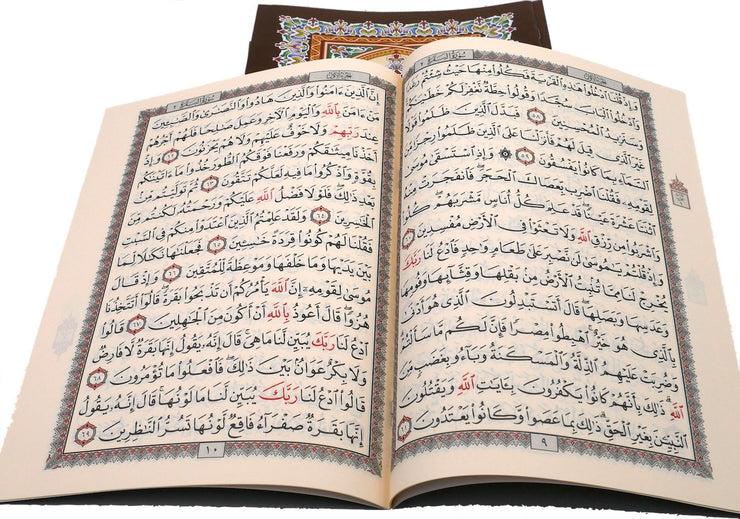 سُورَةُ البَقَرَةِ
الجزء الأول
وَإِذْ قُلْنَا ٱدْخُلُوا۟ هَٰذِهِ ٱلْقَرْيَةَ فَكُلُوا۟ مِنْهَا حَيْثُ شِئْتُمْ رَغَدًا
وَٱدْخُلُوا۟ ٱلْبَابَ سُجَّدًا وَقُولُوا۟ حِطَّةٌ نَّغْفِرْ لَكُمْ خَطَٰيَٰكُمْ
وَسَنَزِيدُ ٱلْمُحْسِنِينَ ٥٨ فَبَدَّلَ ٱلَّذِينَ ظَلَمُوا۟ قَوْلًا
غَيْرَ ٱلَّذِى قِيلَ لَهُمْ فَأَنزَلْنَا عَلَى ٱلَّذِينَ ظَلَمُوا۟ رِجْزًا مِّنَ
ٱلسَّمَآءِ بِمَا كَانُوا۟ يَفْسُقُونَ ٥٩ ۞ وَإِذِ ٱسْتَسْقَىٰ مُوسَىٰ
لِقَوْمِهِۦ فَقُلْنَا ٱضْرِب بِّعَصَاكَ ٱلْحَجَرَ ۖ فَٱنفَجَرَتْ مِنْهُ
ٱثْنَتَا عَشْرَةَ عَيْنًا ۖ قَدْ عَلِمَ كُلُّ أُنَاسٍ مَّشْرَبَهُمْ ۖ كُلُوا۟
وَٱشْرَبُوا۟ مِن رِّزْقِ ٱللَّهِ وَلَا تَعْثَوْا۟ فِى ٱلْأَرْضِ مُفْسِدِينَ ٦٠
وَإِذْ قُلْتُمْ يَٰمُوسَىٰ لَن نَّصْبِرَ عَلَىٰ طَعَامٍ وَٰحِدٍ فَٱدْعُ لَنَا رَبَّكَ
يُخْرِجْ لَنَا مِمَّا تُنۢبِتُ ٱلْأَرْضُ مِنۢ بَقْلِهَا وَقِثَّآئِهَا وَفُومِهَا
وَعَدَسِهَا وَبَصَلِهَا ۖ قَالَ أَتَسْتَبْدِلُونَ ٱلَّذِى هُوَ أَدْنَىٰ
بِٱلَّذِى هُوَ خَيْرٌ ۚ ٱهْبِطُوا۟ مِصْرًا فَإِنَّ لَكُم مَّا سَأَلْتُمْ ۗ
وَضُرِبَتْ عَلَيْهِمُ ٱلذِّلَّةُ وَٱلْمَسْكَنَةُ وَبَآءُو بِغَضَبٍ مِّنَ
ٱللَّهِ ۗ ذَٰلِكَ بِأَنَّهُمْ كَانُوا۟ يَكْفُرُونَ بِـَٔايَٰتِ ٱللَّهِ وَيَقْتُلُونَ
ٱلنَّبِيِّـۧنَ بِغَيْرِ ٱلْحَقِّ ۗ ذَٰلِكَ بِمَا عَصَوا۟ وَّكَانُوا۟ يَعْتَدُونَ ٦١
٩
الجزء الأول
سُورَةُ البَقَرَةِ
إِنَّ ٱلَّذِينَ ءَامَنُوا۟ وَٱلَّذِينَ هَادُوا۟ وَٱلنَّصَٰرَىٰ وَٱلصَّٰبِـِٔينَ
مَنْ ءَامَنَ بِٱللَّهِ وَٱلْيَوْمِ ٱلْءَاخِرِ وَعَمِلَ صَٰلِحًا فَلَهُمْ أَجْرُهُمْ
عِندَ رَبِّهِمْ وَلَا خَوْفٌ عَلَيْهِمْ وَلَا هُمْ يَحْزَنُونَ ٦٢ وَإِذْ
أَخَذْنَا مِيثَٰقَكُمْ وَرَفَعْنَا فَوْقَكُمُ ٱلطُّورَ خُذُوا۟ مَآ ءَاتَيْنَٰكُم
بِقُوَّةٍ وَٱذْكُرُوا۟ مَا فِيهِ لَعَلَّكُمْ تَتَّقُونَ ٦٣ ثُمَّ تَوَلَّيْتُم مِّنۢ
بَعْدِ ذَٰلِكَ ۖ فَلَوْلَا فَضْلُ ٱللَّهِ عَلَيْكُمْ وَرَحْمَتُهُۥ لَكُنتُم مِّنَ
ٱلْخَٰسِرِينَ ٦٤ وَلَقَدْ عَلِمْتُمُ ٱلَّذِينَ ٱعْتَدَوْا۟ مِنكُمْ فِى ٱلسَّبْتِ
فَقُلْنَا لَهُمْ كُونُوا۟ قِرَدَةً خَٰسِـِٔينَ ٦٥ فَجَعَلْنَٰهَا نَكَٰلًا لِّمَا
بَيْنَ يَدَيْهَا وَمَا خَلْفَهَا وَمَوْعِظَةً لِّلْمُتَّقِينَ ٦٦ وَإِذْ قَالَ
مُوسَىٰ لِقَوْمِهِۦٓ إِنَّ ٱللَّهَ يَأْمُرُكُمْ أَن تَذْبَحُوا۟ بَقَرَةً ۖ قَالُوٓا۟ أَتَتَّخِذُنَا
هُزُوًا ۖ قَالَ أَعُوذُ بِٱللَّهِ أَنْ أَكُونَ مِنَ ٱلْجَٰهِلِينَ ٦٧ قَالُوا۟
ٱدْعُ لَنَا رَبَّكَ يُبَيِّن لَّنَا مَا هِىَ ۚ قَالَ إِنَّهُۥ يَقُولُ إِنَّهَا بَقَرَةٌ لَّا فَارِضٌ
وَلَا بِكْرٌ عَوَانٌۢ بَيْنَ ذَٰلِكَ ۖ فَٱفْعَلُوا۟ مَا تُؤْمَرُونَ ٦٨
قَالُوا۟ ٱدْعُ لَنَا رَبَّكَ يُبَيِّن لَّنَا مَا لَوْنُهَا ۚ قَالَ إِنَّهُۥ يَقُولُ
إِنَّهَا بَقَرَةٌ صَفْرَآءُ فَاقِعٌ لَّوْنُهَا تَسُرُّ ٱلنَّٰظِرِينَ ٦٩
١٠